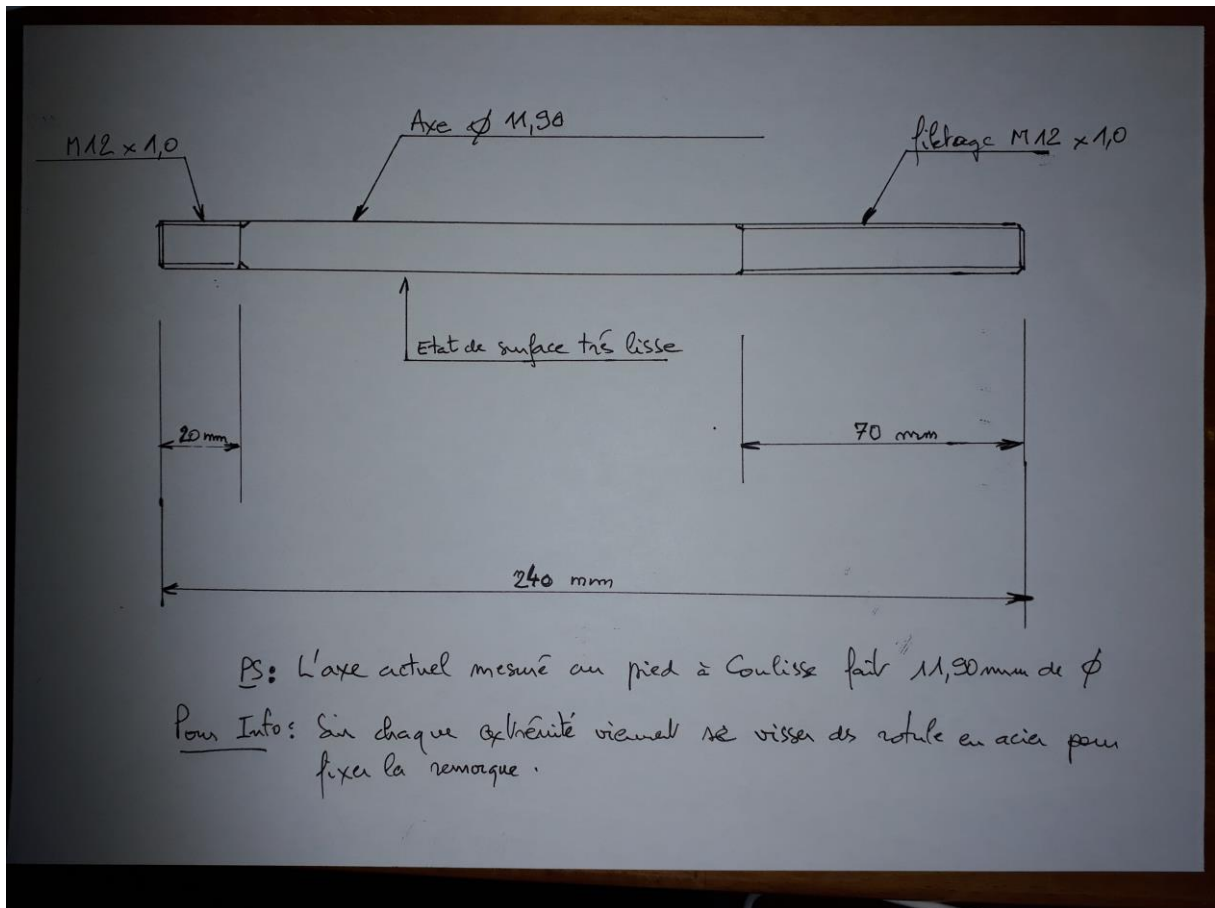 Axe ⌀ 11,90
M12 x 1,0
filetage M12 x 1,0
Etat de surface trés lisse
20 mm
70 mm
240 mm
PS: L'axe actuel mesuré au pied à Coulisse fait 11,90 mm de ⌀
Pour Info: Sur chaque extrémité viennent se visser ds rotule en acier pour
fixer la remorque.